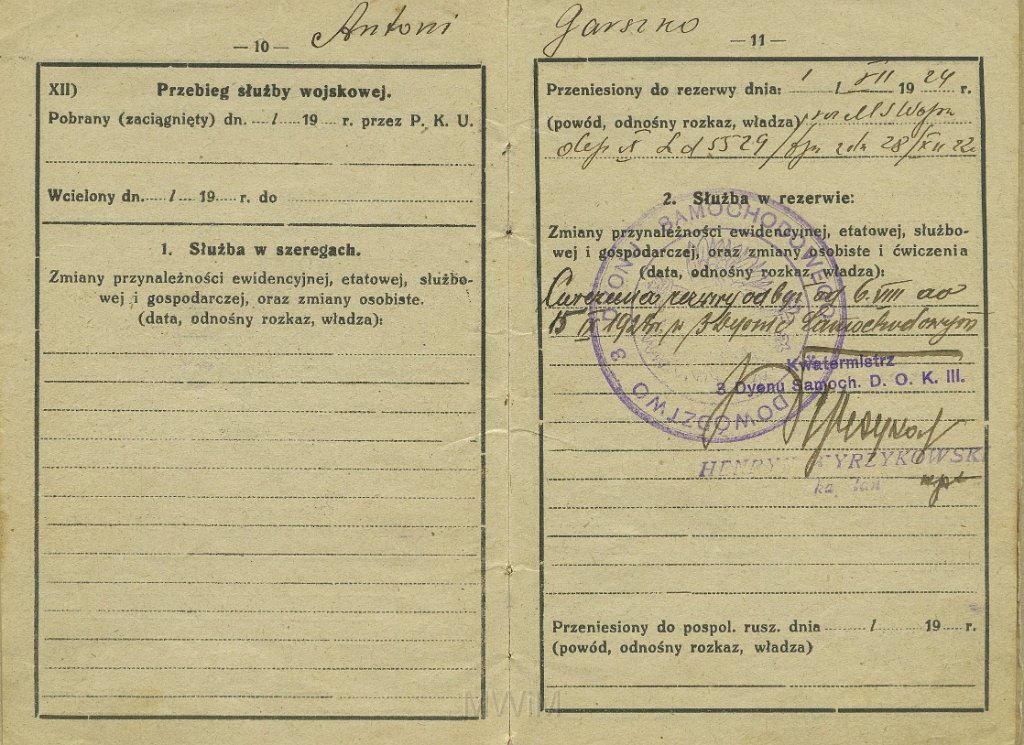 — 10 — Antoni
XII) Przebieg służby wojskowej.
Pobrany (zaciągnięty) dn. / 19 r. przez P. K. U.
Wcielony dn. / 19 r. do
1. Służba w szeregach.
Zmiany przynależności ewidencyjnej, etatowej, służbo-
wej i gospodarczej, oraz zmiany osobiste.
(data, odnośny rozkaz, władza):
Garszko — 11 —
Przeniesiony do rezerwy dnia: 1 / XII 19 24 r.
(powód, odnośny rozkaz, władza) MSWojsk
5529 28/XII 22
2. Służba w rezerwie:
Zmiany przynależności ewidencyjnej, etatowej, służbo-
wej i gospodarczej, oraz zmiany osobiste i ćwiczenia
(data, odnośny rozkaz, władza):
Ćwiczenia rezerwy odbył od 6. VIII do
15 w 3 Dyonie Samochodowym
DOWÓDZTWO 3 DYONU SAMOCHODOWEGO
Kwatermistrz
3 Dyonu Samoch. D. O. K. III.
HENRYK WYRZYKOWSKI
Przeniesiony do pospol. rusz. dnia / 19 r.
(powód, odnośny rozkaz, władza)
MWiM